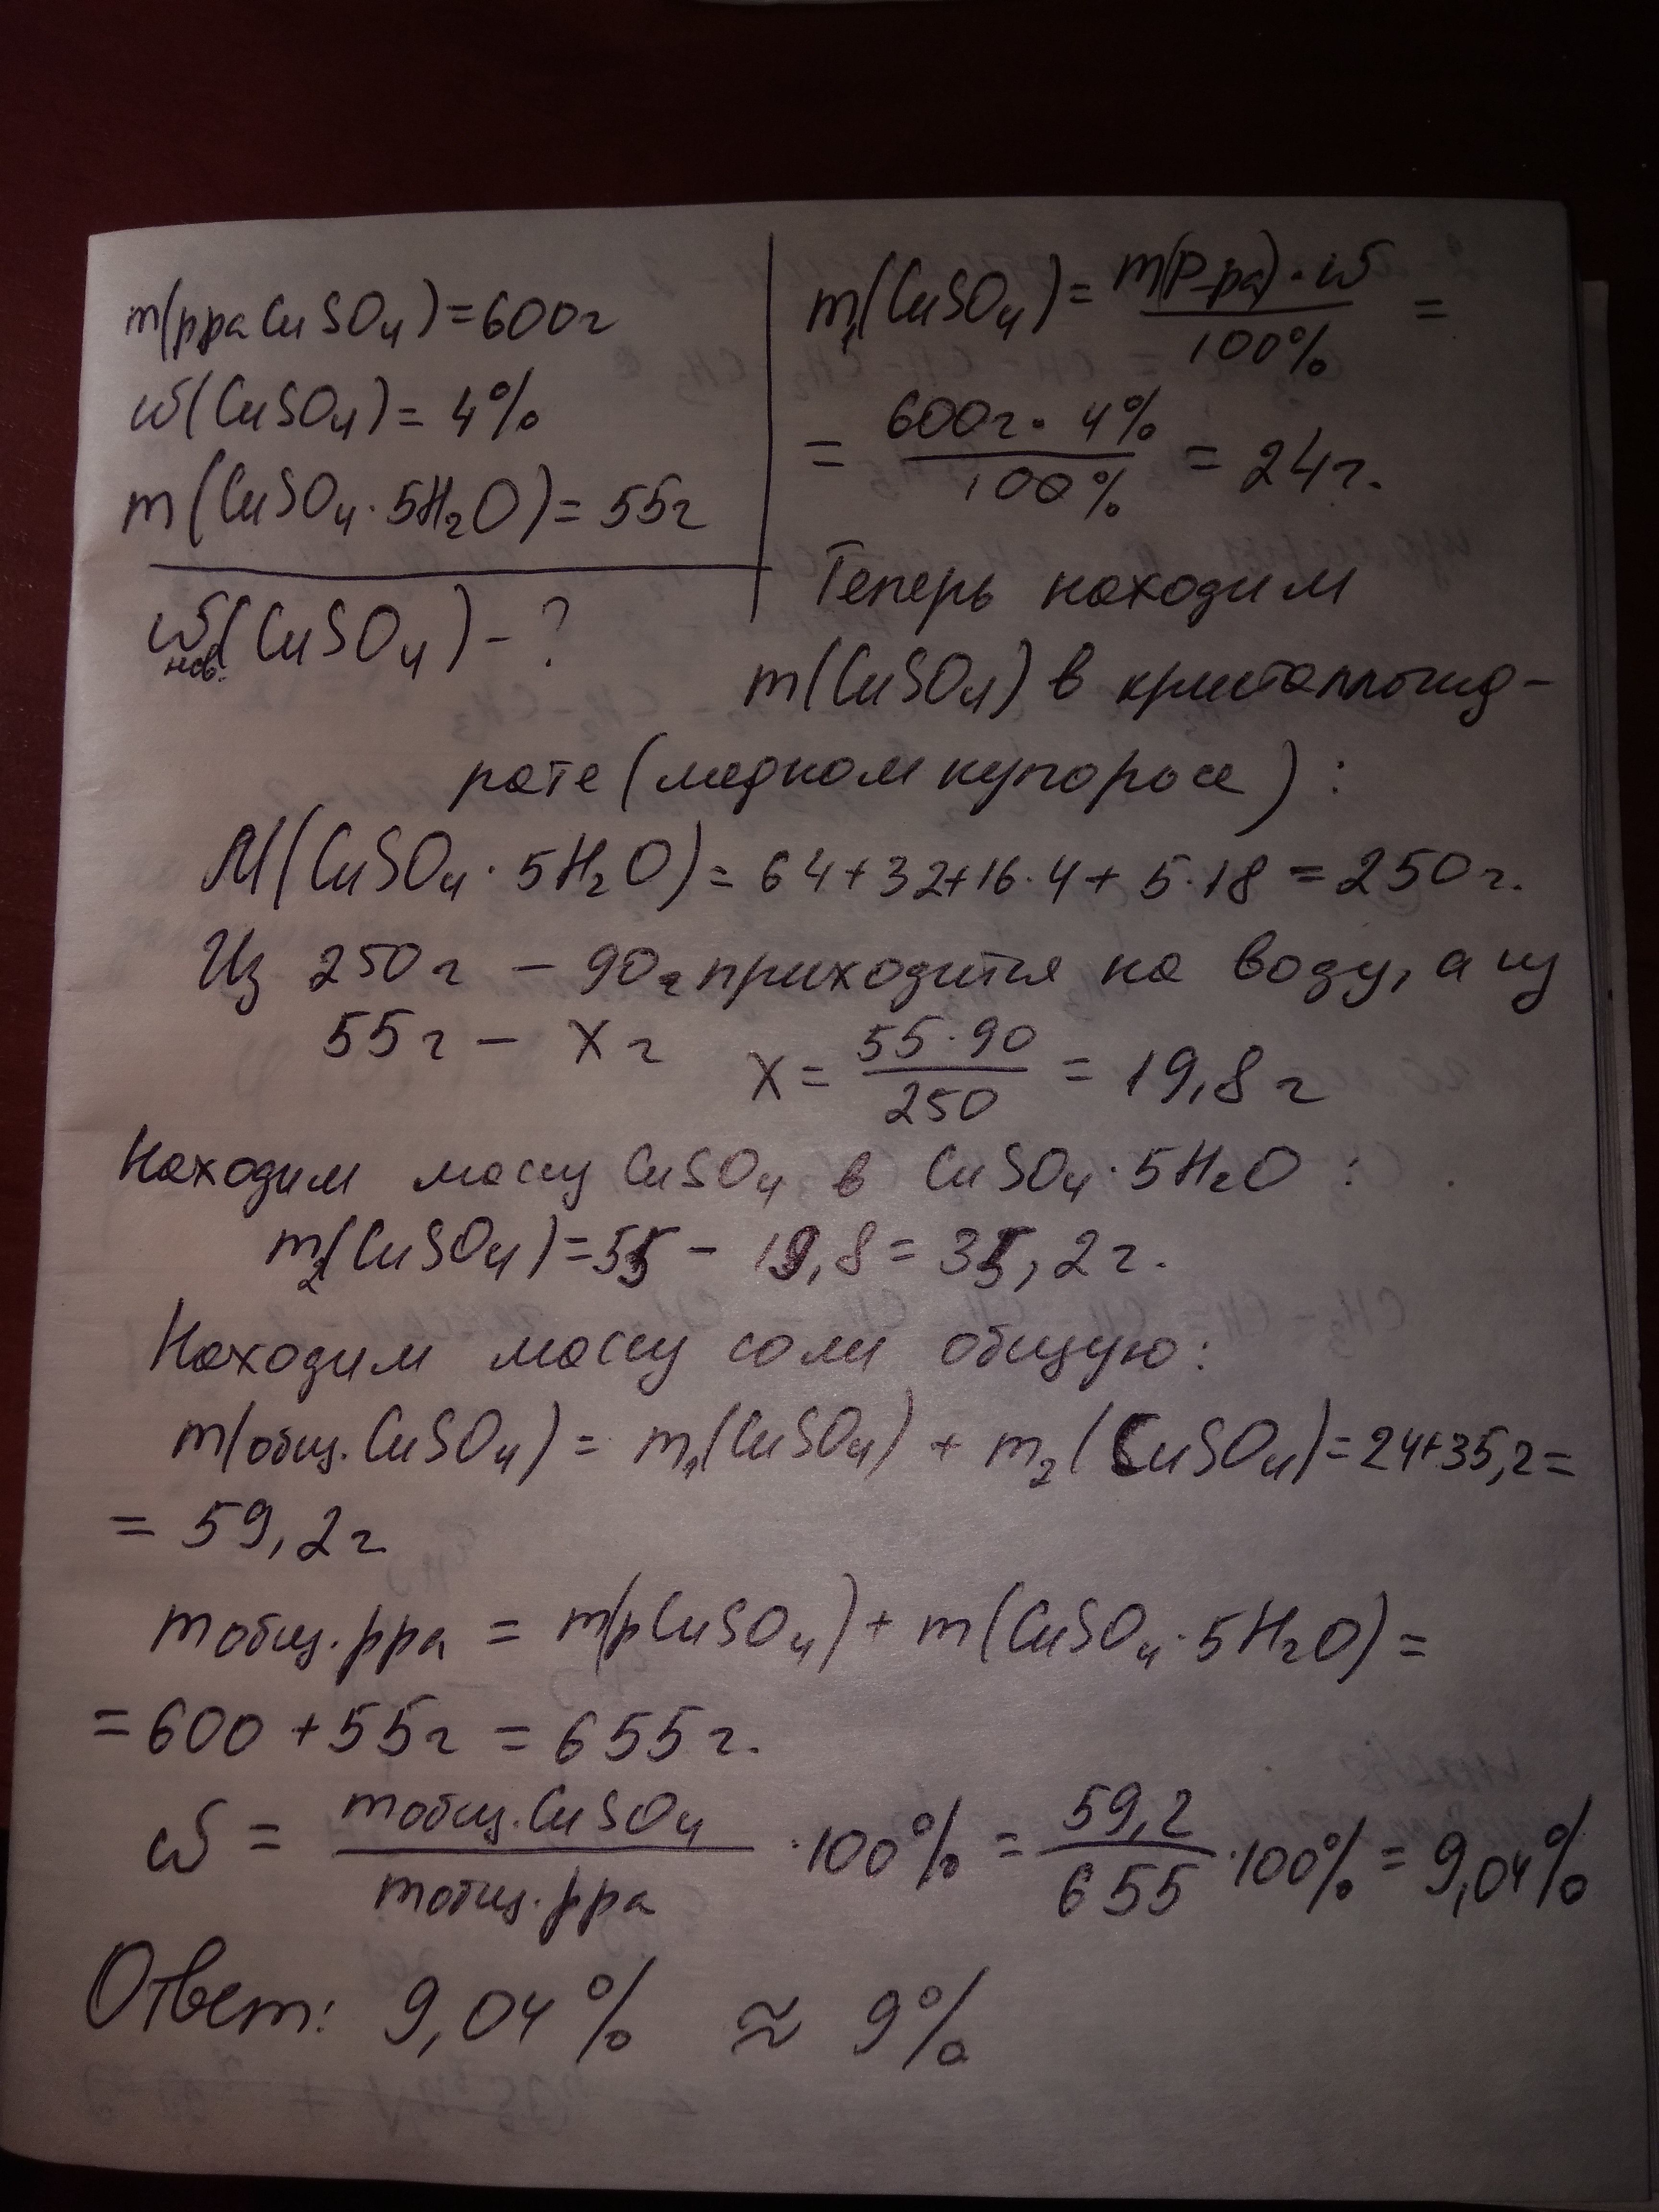 m(рра CuSO₄) = 600г
ω(CuSO₄) = 4%
m(CuSO₄·5H₂O) = 55г
ω нов.(CuSO₄) - ?
m₁(CuSO₄) = m(р-ра)·ω / 100% =
= 600г·4% / 100% = 24г.
Теперь находим
m(CuSO₄) в кристаллогид-
рате (медном купоросе):
M(CuSO₄·5H₂O) = 64+32+16·4+5·18 = 250г.
Из 250г – 90г приходится на воду, а из
55г – X г X = 55·90 / 250 = 19,8г
Находим массу CuSO₄ в CuSO₄·5H₂O:
m₂(CuSO₄) = 55 - 19,8 = 35,2г.
Находим массу соли общую:
m(общ. CuSO₄) = m₁(CuSO₄) + m₂(CuSO₄) = 24+35,2 =
= 59,2г
m общ. рра = m(р CuSO₄) + m(CuSO₄·5H₂O) =
= 600 + 55г = 655г.
ω = m общ. CuSO₄ / m общ. рра ·100% = 59,2 / 655 ·100% = 9,04%
Ответ: 9,04% ≈ 9%